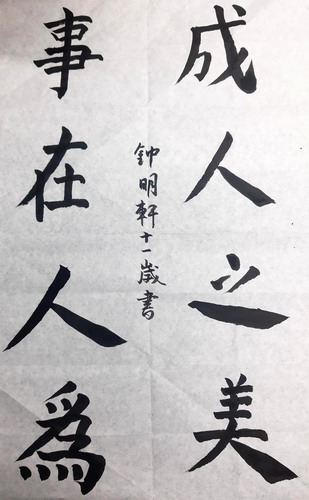 成人之美
事在人為
钟明軒十一歲書